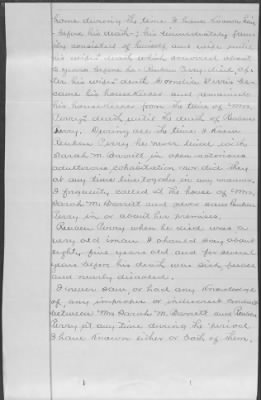 home during the time I have known him
before his death; his immediately fami-
ly consisted of himself and wife until
his wife's death which occurred about
years before he Reuben Perry died, af-
ter his wife's death Cornelia Perris be-
came his housekeeper and remained
his housekeeper from the time of Mrs.
Perry's death until the death of Reuben
Perry. During all the time I knew
Reuben Perry he never lived with
Sarah M. Barrett in open notorious
adulterous cohabitation nor did they
at any time live together in any manner.
I frequently called at the house of Mrs.
Sarah M. Barrett and never saw Reuben
Perry in or about her premises.
Reuben Perry when he died was a
very old man I should say about
eighty five years old and for several
years before his death was sick feeble
and nearly disabled.
I never saw or had any knowledge
of any improper or indiscreet conduct
between Mrs Sarah M. Barrett and Reuben
Perry at any time during the period
I have known either or both of them.